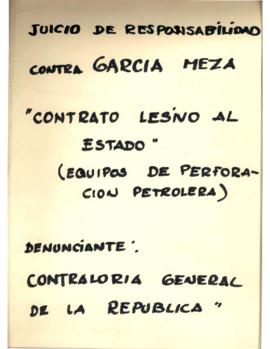 JUICIO DE RESPONSABILIDAD
CONTRA GARCIA MEZA
"CONTRATO LESIVO AL
ESTADO"
(EQUIPOS DE PERFORA-
CION PETROLERA)
DENUNCIANTE:
CONTRALORIA GENERAL
DE LA REPUBLICA"